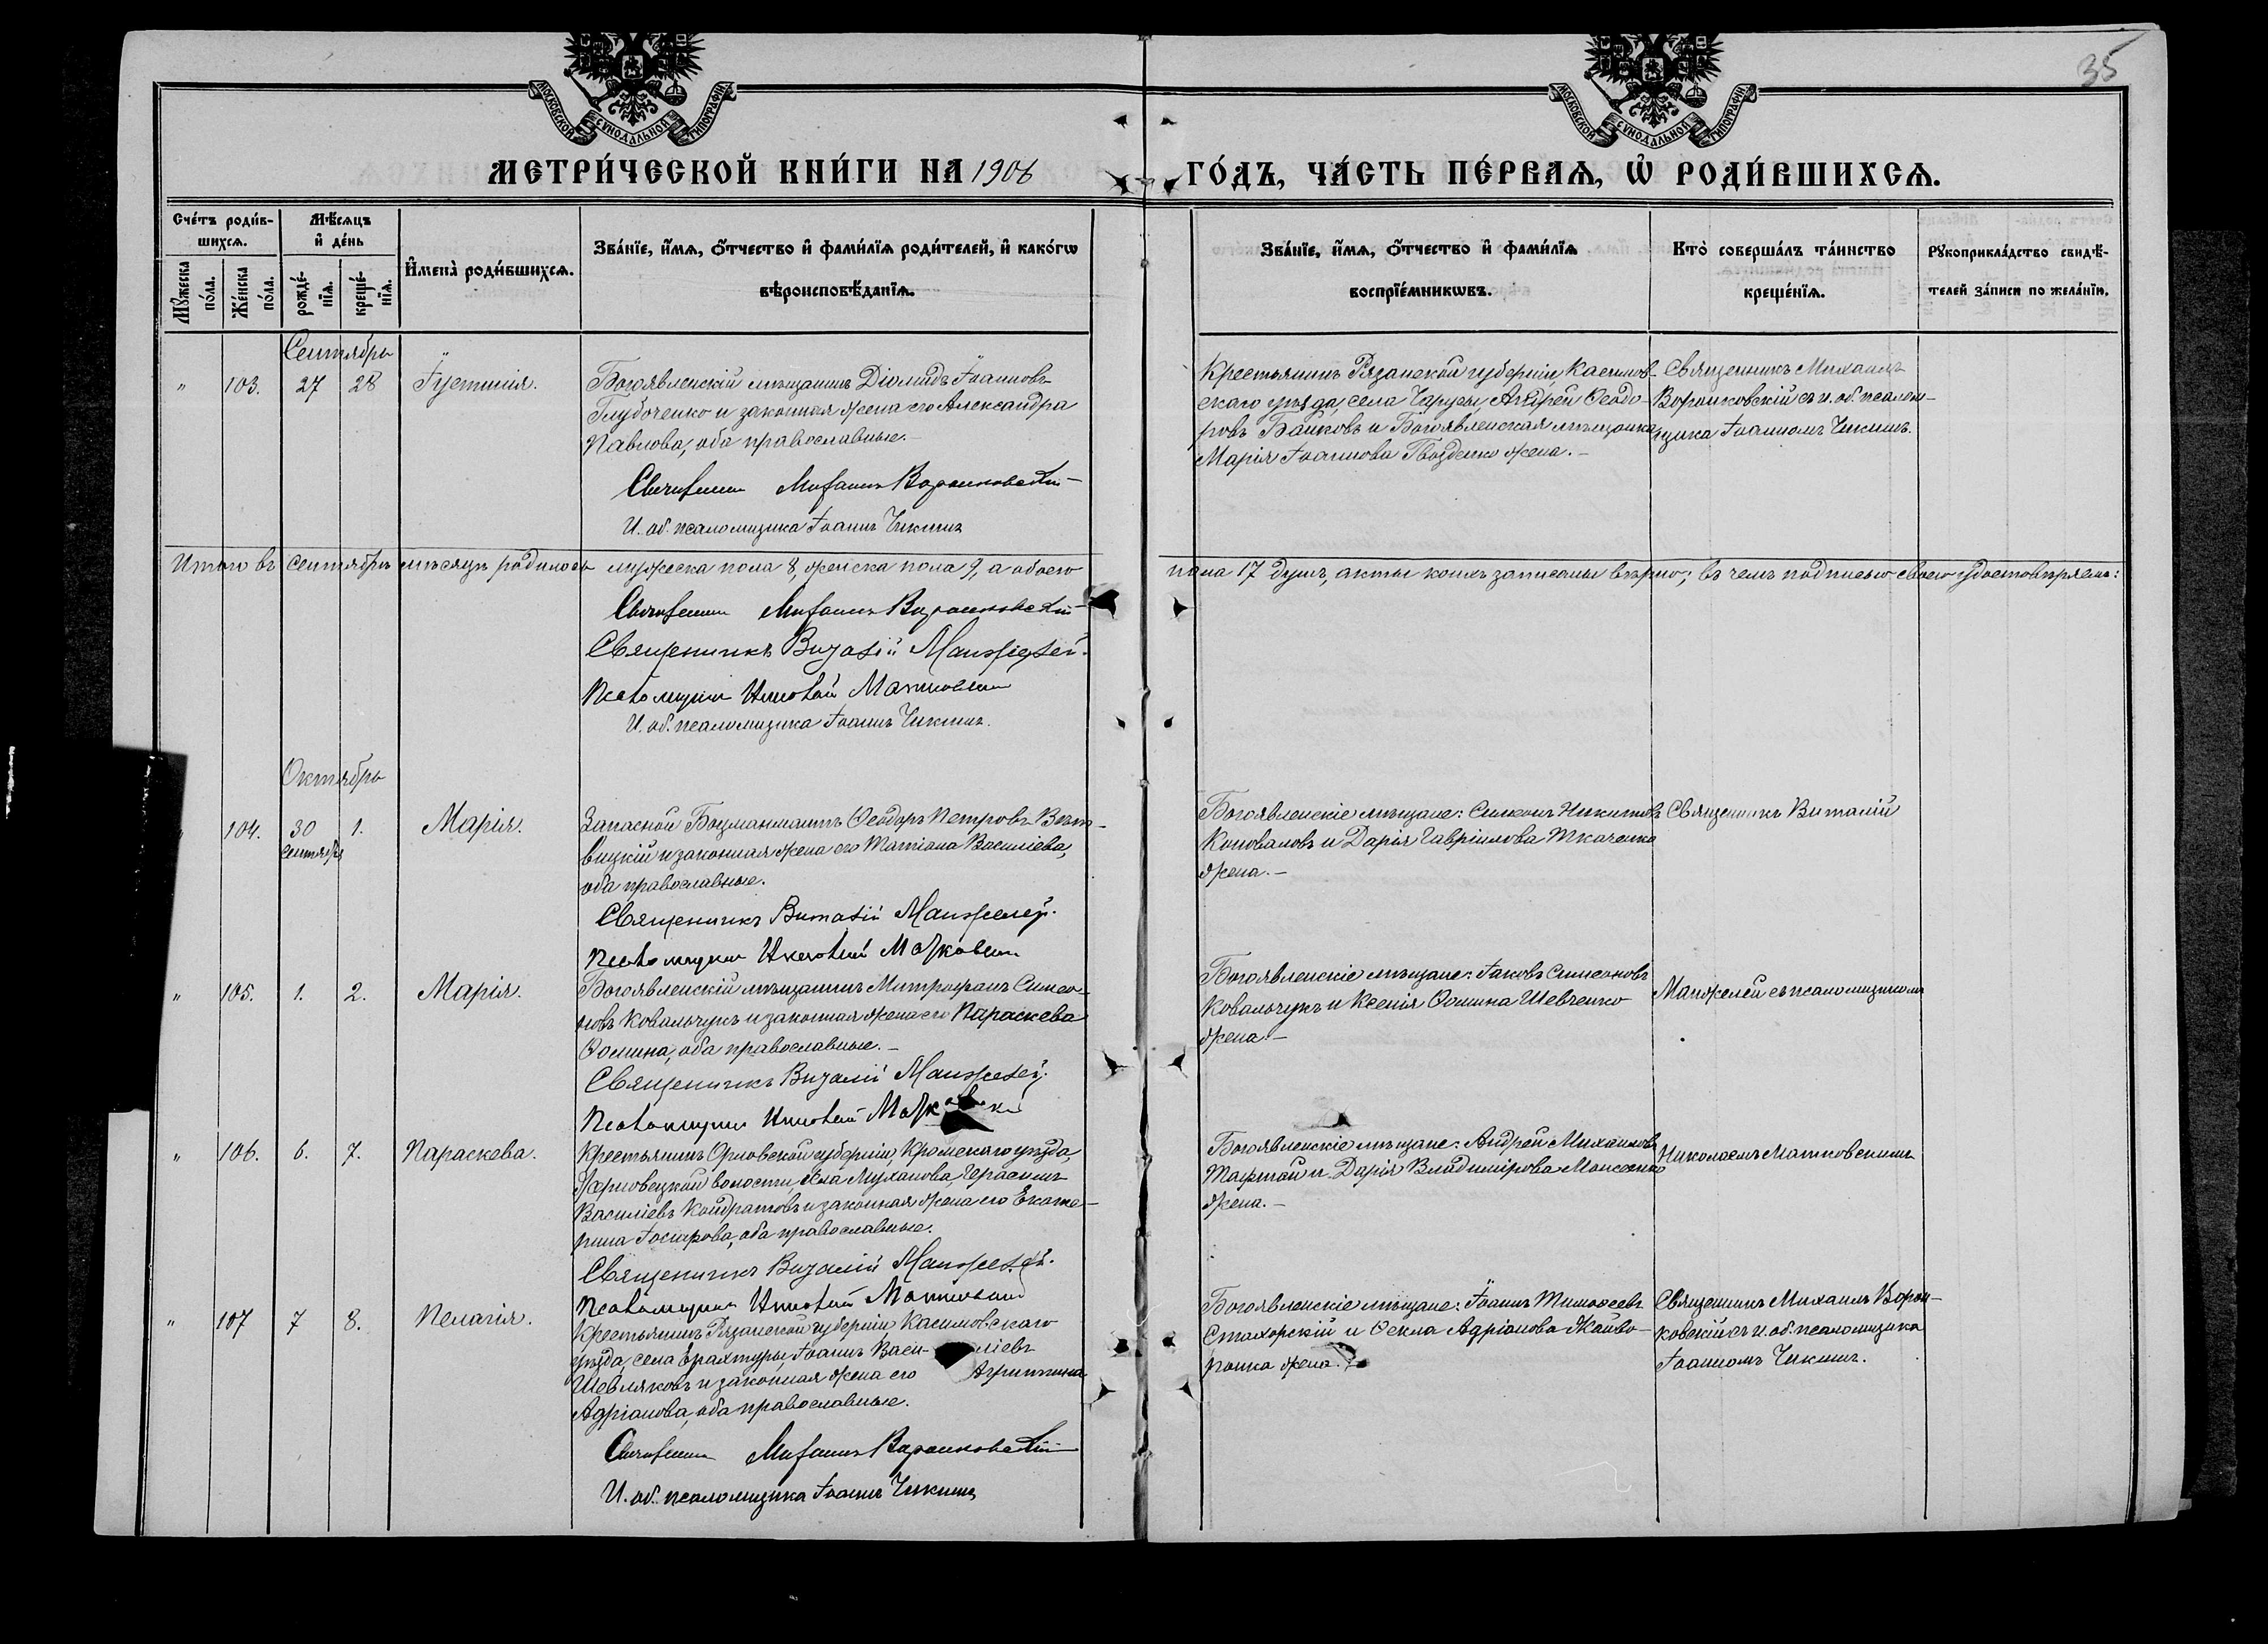 35
МОСКОВСКОЙ СѴНОДАЛЬНОЙ ТИПОГРАФІИ
МОСКОВСКОЙ СѴНОДАЛЬНОЙ ТИПОГРАФІИ
МЕТРИ́ЧЕСКОЙ КНИ́ГИ НА 1906 ГО́ДЪ, ЧА́СТЬ ПЕ́РВАѦ, Ѡ҆ РОДИ́ВШИХСѦ.
Сче́тъ роди́в-
шихсѧ.
Мꙋ́жеска по́ла.
Же́нска по́ла.
Мѣ́сѧцъ
и҆ де́нь
рожде́-
нїѧ.
креще́-
нїѧ.
И҆мена̀ роди́вшихсѧ.
Зва́нїе, и҆́мѧ, ѻ҆́тчество и҆ фами́лїѧ роди́телей, и҆ како́гѡ
вѣроисповѣ́данїѧ.
Зва́нїе, и҆́мѧ, ѻ҆́тчество и҆ фами́лїѧ
воспрїе́мникѡвъ.
Кто̀ соверша́лъ та́инство
креще́нїѧ.
Рꙋкоприкла́дство свидѣ́-
телей за́писи по жела́нїю.
Сентябрь
" 103. 27 28 Іустинія.
Богоявленскій мѣщанинъ Діомидъ Іоанновъ
Глубоченко и законная жена его Александра
Павлова, оба православные.–
Священникъ Михаилъ Воронковскій
И. об. псаломщика Іоаннъ Чикинъ
Крестьянинъ Рязанской губерніи, Касимов-
скаго уѣзда, села Чарусы, Андрей Ѳеодо-
ровъ Байковъ и Богоявленская мѣщанка
Марія Іоаннова Гвозденко жена.–
Священникъ Михаилъ
Воронковскій съ и. об. псалом-
щика Іоанномъ Чикинъ.
Итого въ сентябрѣ мѣсяцѣ родилось мужеска пола 8, женска пола 9, а обоего пола 17 душъ, акты коихъ записаны вѣрно; въ чемъ подписью своею удостовѣряемъ:
Священникъ Михаилъ Воронковскій
Священникъ Виталій Манжелей.
Псаломщикъ Николай Матковскій
И. об. псаломщика Іоаннъ Чикинъ.
Октябрь
" 104. 30 сентября 1. Марія.
Запасной Боцманматъ Ѳеодоръ Петровъ
и законная жена его Татіана Василіева,
оба православные.
Священникъ Виталій Манжелей.
Псаломщикъ Николай Матковскій
Богоявленскіе мѣщане: Симеонъ Никитовъ
Коноваловъ и Дарія Гавріилова Ткаченко
жена.–
Священникъ Виталій
" 105. 1. 2. Марія.
Богоявленскій мѣщанинъ Митрофанъ Симео-
новъ Ковальчукъ и законная жена его Параскева
Ѳомина, оба православные.–
Священникъ Виталій Манжелей.
Псаломщикъ Николай Матковскій
Богоявленскіе мѣщане: Іаковъ Симеоновъ
Ковальчукъ и Ксенія Ѳомина Шевченко
жена.–
Манжелей съ псаломщикомъ
" 106. 6. 7. Параскева.
Крестьянинъ Орловской губерніи, Кромскаго уѣзда,
волости, села Муханова, Герасимъ
Василіевъ Кондратовъ и законная жена его Екате-
рина Іосифова, оба православные.
Священникъ Виталій Манжелей.
Псаломщикъ Николай Матковскій
Богоявленскіе мѣщане: Андрей Михаиловъ
Тафтай и Дарія Владимірова Моисеенко
жена.–
Николаемъ Матковскимъ
" 107 7 8. Пелагія.
Крестьянинъ Рязанской губерніи Касимовскаго
уѣзда, села Ерахтуры, Іоаннъ Васи-ліевъ
Шевляковъ и законная жена его Агриппина
Адріанова, оба православные.
Священникъ Михаилъ Воронковскій
И. об. псаломщика Іоаннъ Чикинъ
Богоявленскіе мѣщане: Іоаннъ Тимоѳеевъ
Стахорскій и Ѳекла Адріанова Жайво-
ронка жена.
Священникъ Михаилъ Ворон-
ковскій съ и. об. псаломщика
Іоанномъ Чикинъ.